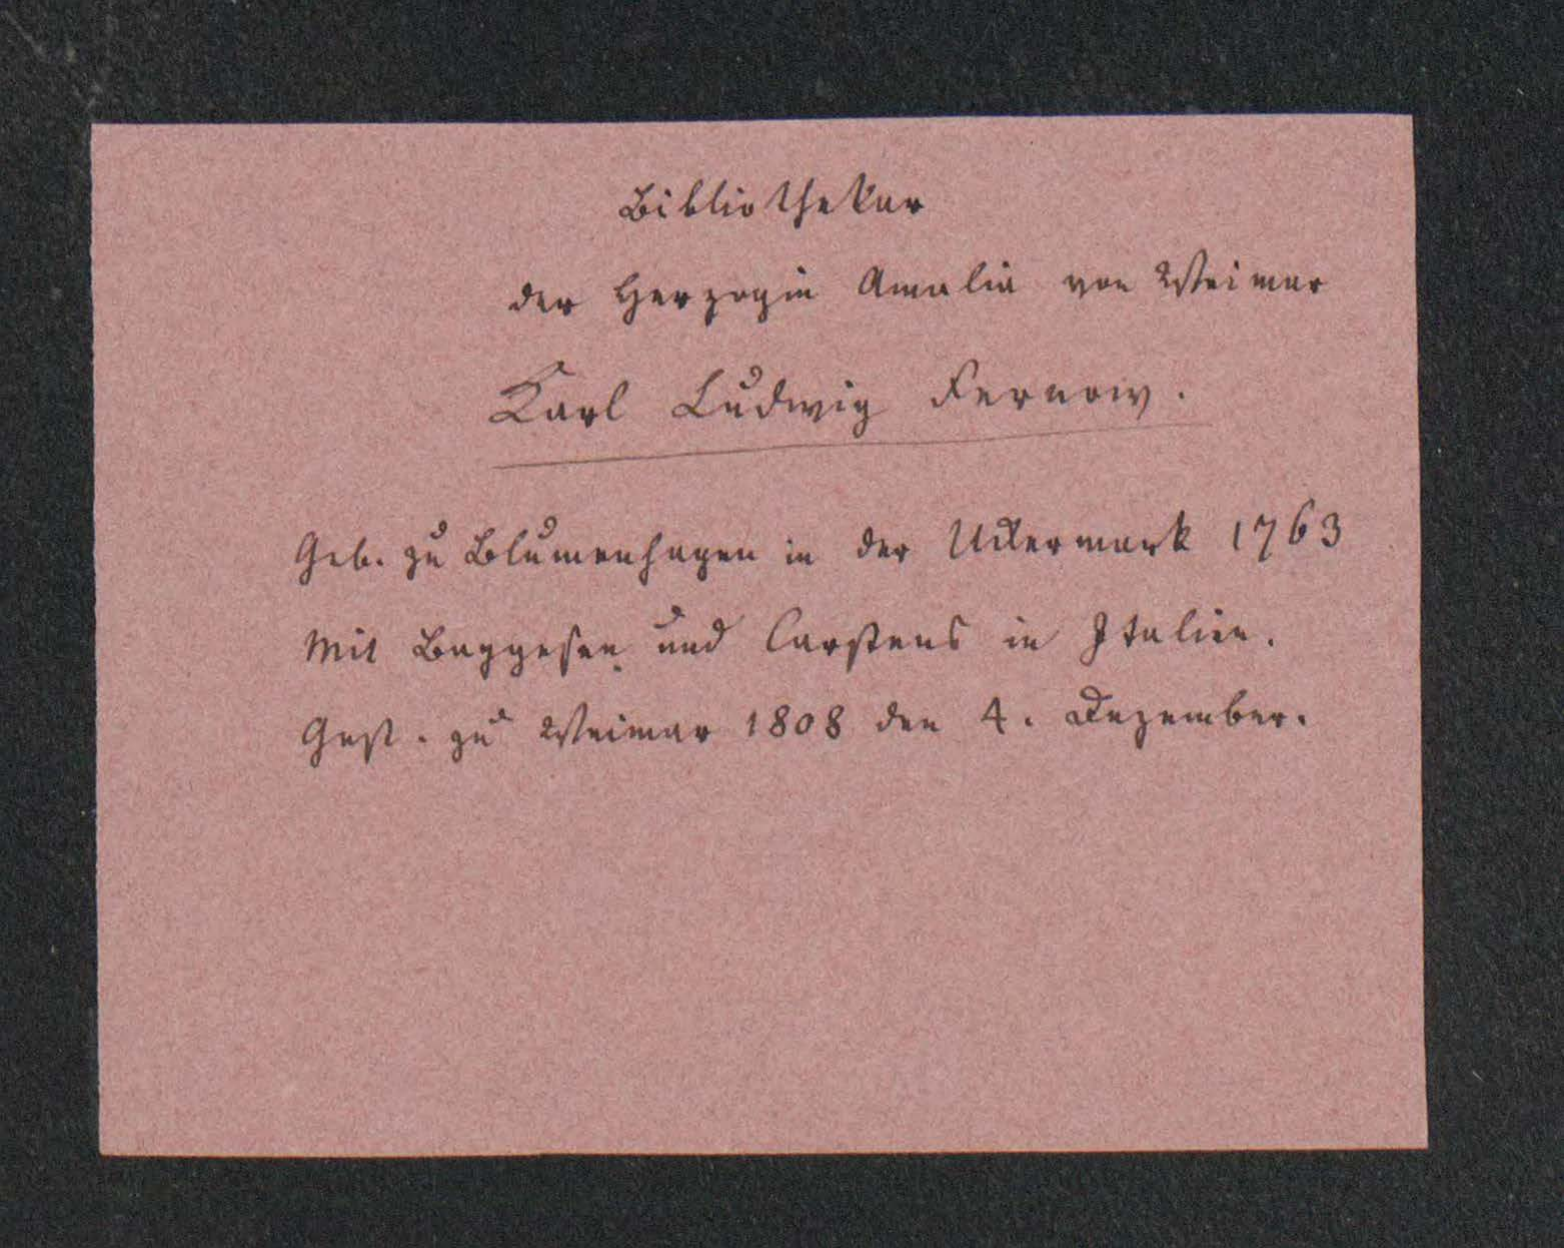 Bibliothekar
der Herzogin Amalia von Weimar
Karl Ludwig Fernow.
Geb. zu Blumenhagen in der Uckermark 1763
Mit Baggesen und Carstens in Italien.
Gest. zu Weimar 1808 den 4. Dezember.